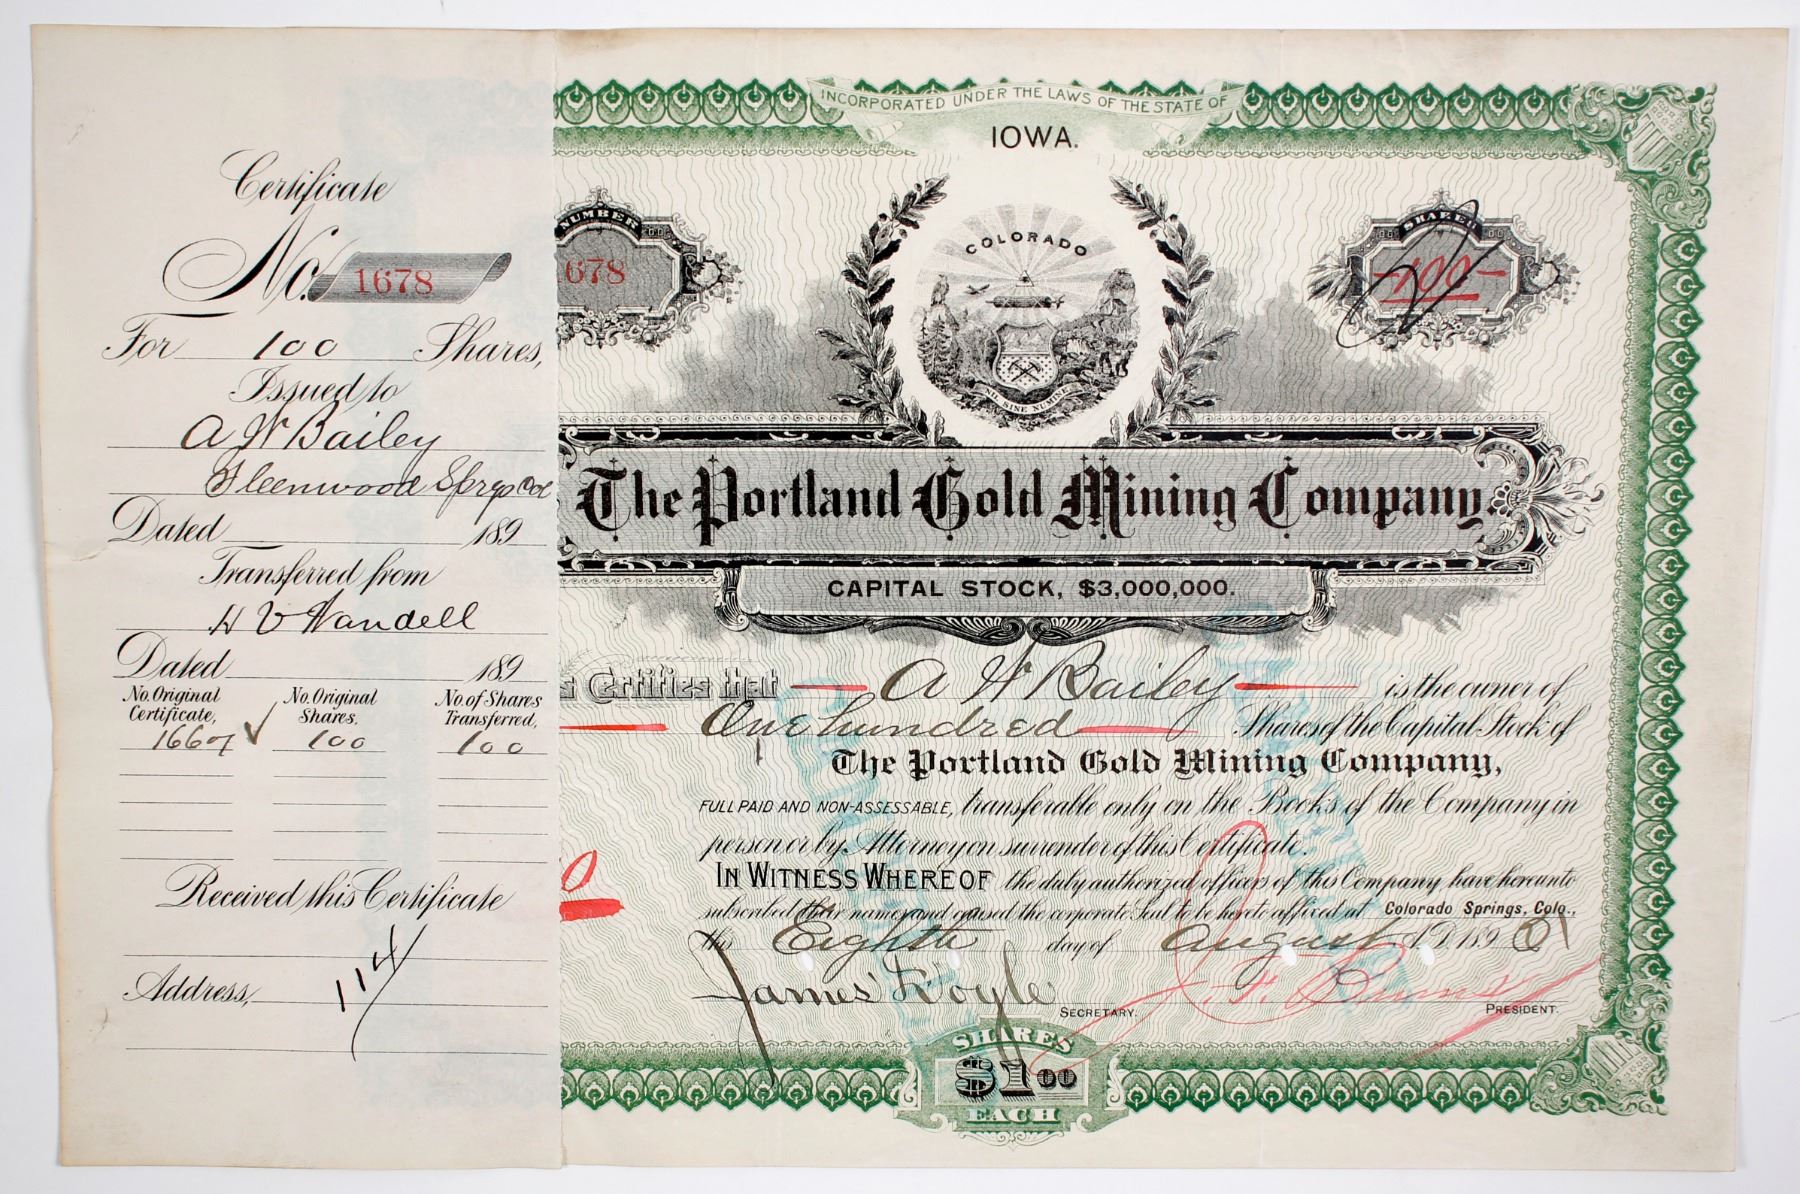 Certificate
No. 1678
For 100 Shares,
Issued to
A W Bailey
Glenwood Sprgs Col
Dated 189
Transferred from
H V Wandell
Dated 189
No. Original Certificate, No. Original Shares. No. of Shares Transferred,
1667 ✓ 100 100
Received this Certificate
114
Address,
INCORPORATED UNDER THE LAWS OF THE STATE OF
IOWA.
NUMBER
1678
COLORADO
NIL SINE NUMINE
SHARES
-100-
The Portland Gold Mining Company.
CAPITAL STOCK, $3,000,000.
s Certifies that A W Bailey is the owner of
One hundred Shares of the Capital Stock of
The Portland Gold Mining Company,
FULL PAID AND NON-ASSESSABLE, transferable only on the Books of the Company in
person or by Attorney on surrender of this Certificate.
IN WITNESS WHEREOF the duly authorized officers of this Company have hereunto
subscribed their names and caused the corporate Seal to be hereto affixed at Colorado Springs, Colo.,
this Eighth day of August A.D. 189 01
James Doyle SECRETARY.
J. F. Burns PRESIDENT.
SHARES
$1.00
EACH